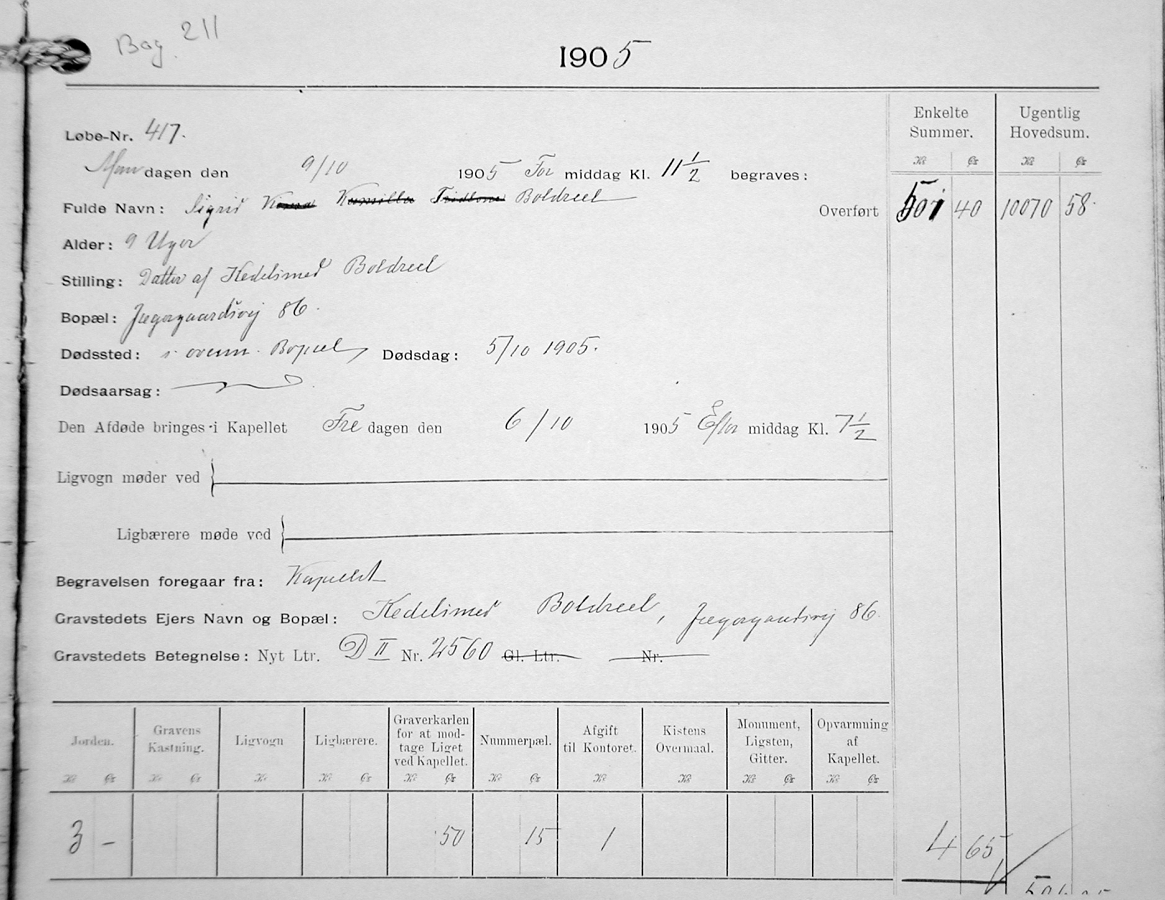 Bog 211
1905
Enkelte Summer. Ugentlig Hovedsum.
Kr Ør Kr Ør
Løbe-Nr. 417.
Mandagen den 9/10 1905 For middag Kl. 11 1/2 begraves:
Fulde Navn: Sigrid Kamilla Boldreel
Overført 501 40 10070 58.
Alder: 9 Uger
Stilling: Datter af Kedelsmed Boldreel
Bopæl: Jægergaardsvej 86.
Dødssted: i ovenn. Bopæl, Dødsdag: 5/10 1905.
Dødsaarsag:
Den Afdøde bringes i Kapellet Fredagen den 6/10 1905 Efter middag Kl. 7 1/2
Ligvogn møder ved
Ligbærere møde ved
Begravelsen foregaar fra: Kapellet
Gravstedets Ejers Navn og Bopæl: Kedelsmed Boldreel, Jægergaardsvej 86.
Gravstedets Betegnelse: Nyt Ltr. D II Nr. 2560 Gl. Ltr. Nr.
Jorden. Gravens Kastning. Ligvogn Ligbærere. Graverkarlen for at modtage Liget ved Kapellet. Nummerpæl. Afgift til Kontoret. Kistens Overmaal. Monument, Ligsten, Gitter. Opvarmning af Kapellet.
Kr Ør Kr Ør Kr Kr Ør Kr Ør Kr Ør Kr Kr Ør Kr Ør Kr Ør
3 - 50 15 1 4 65